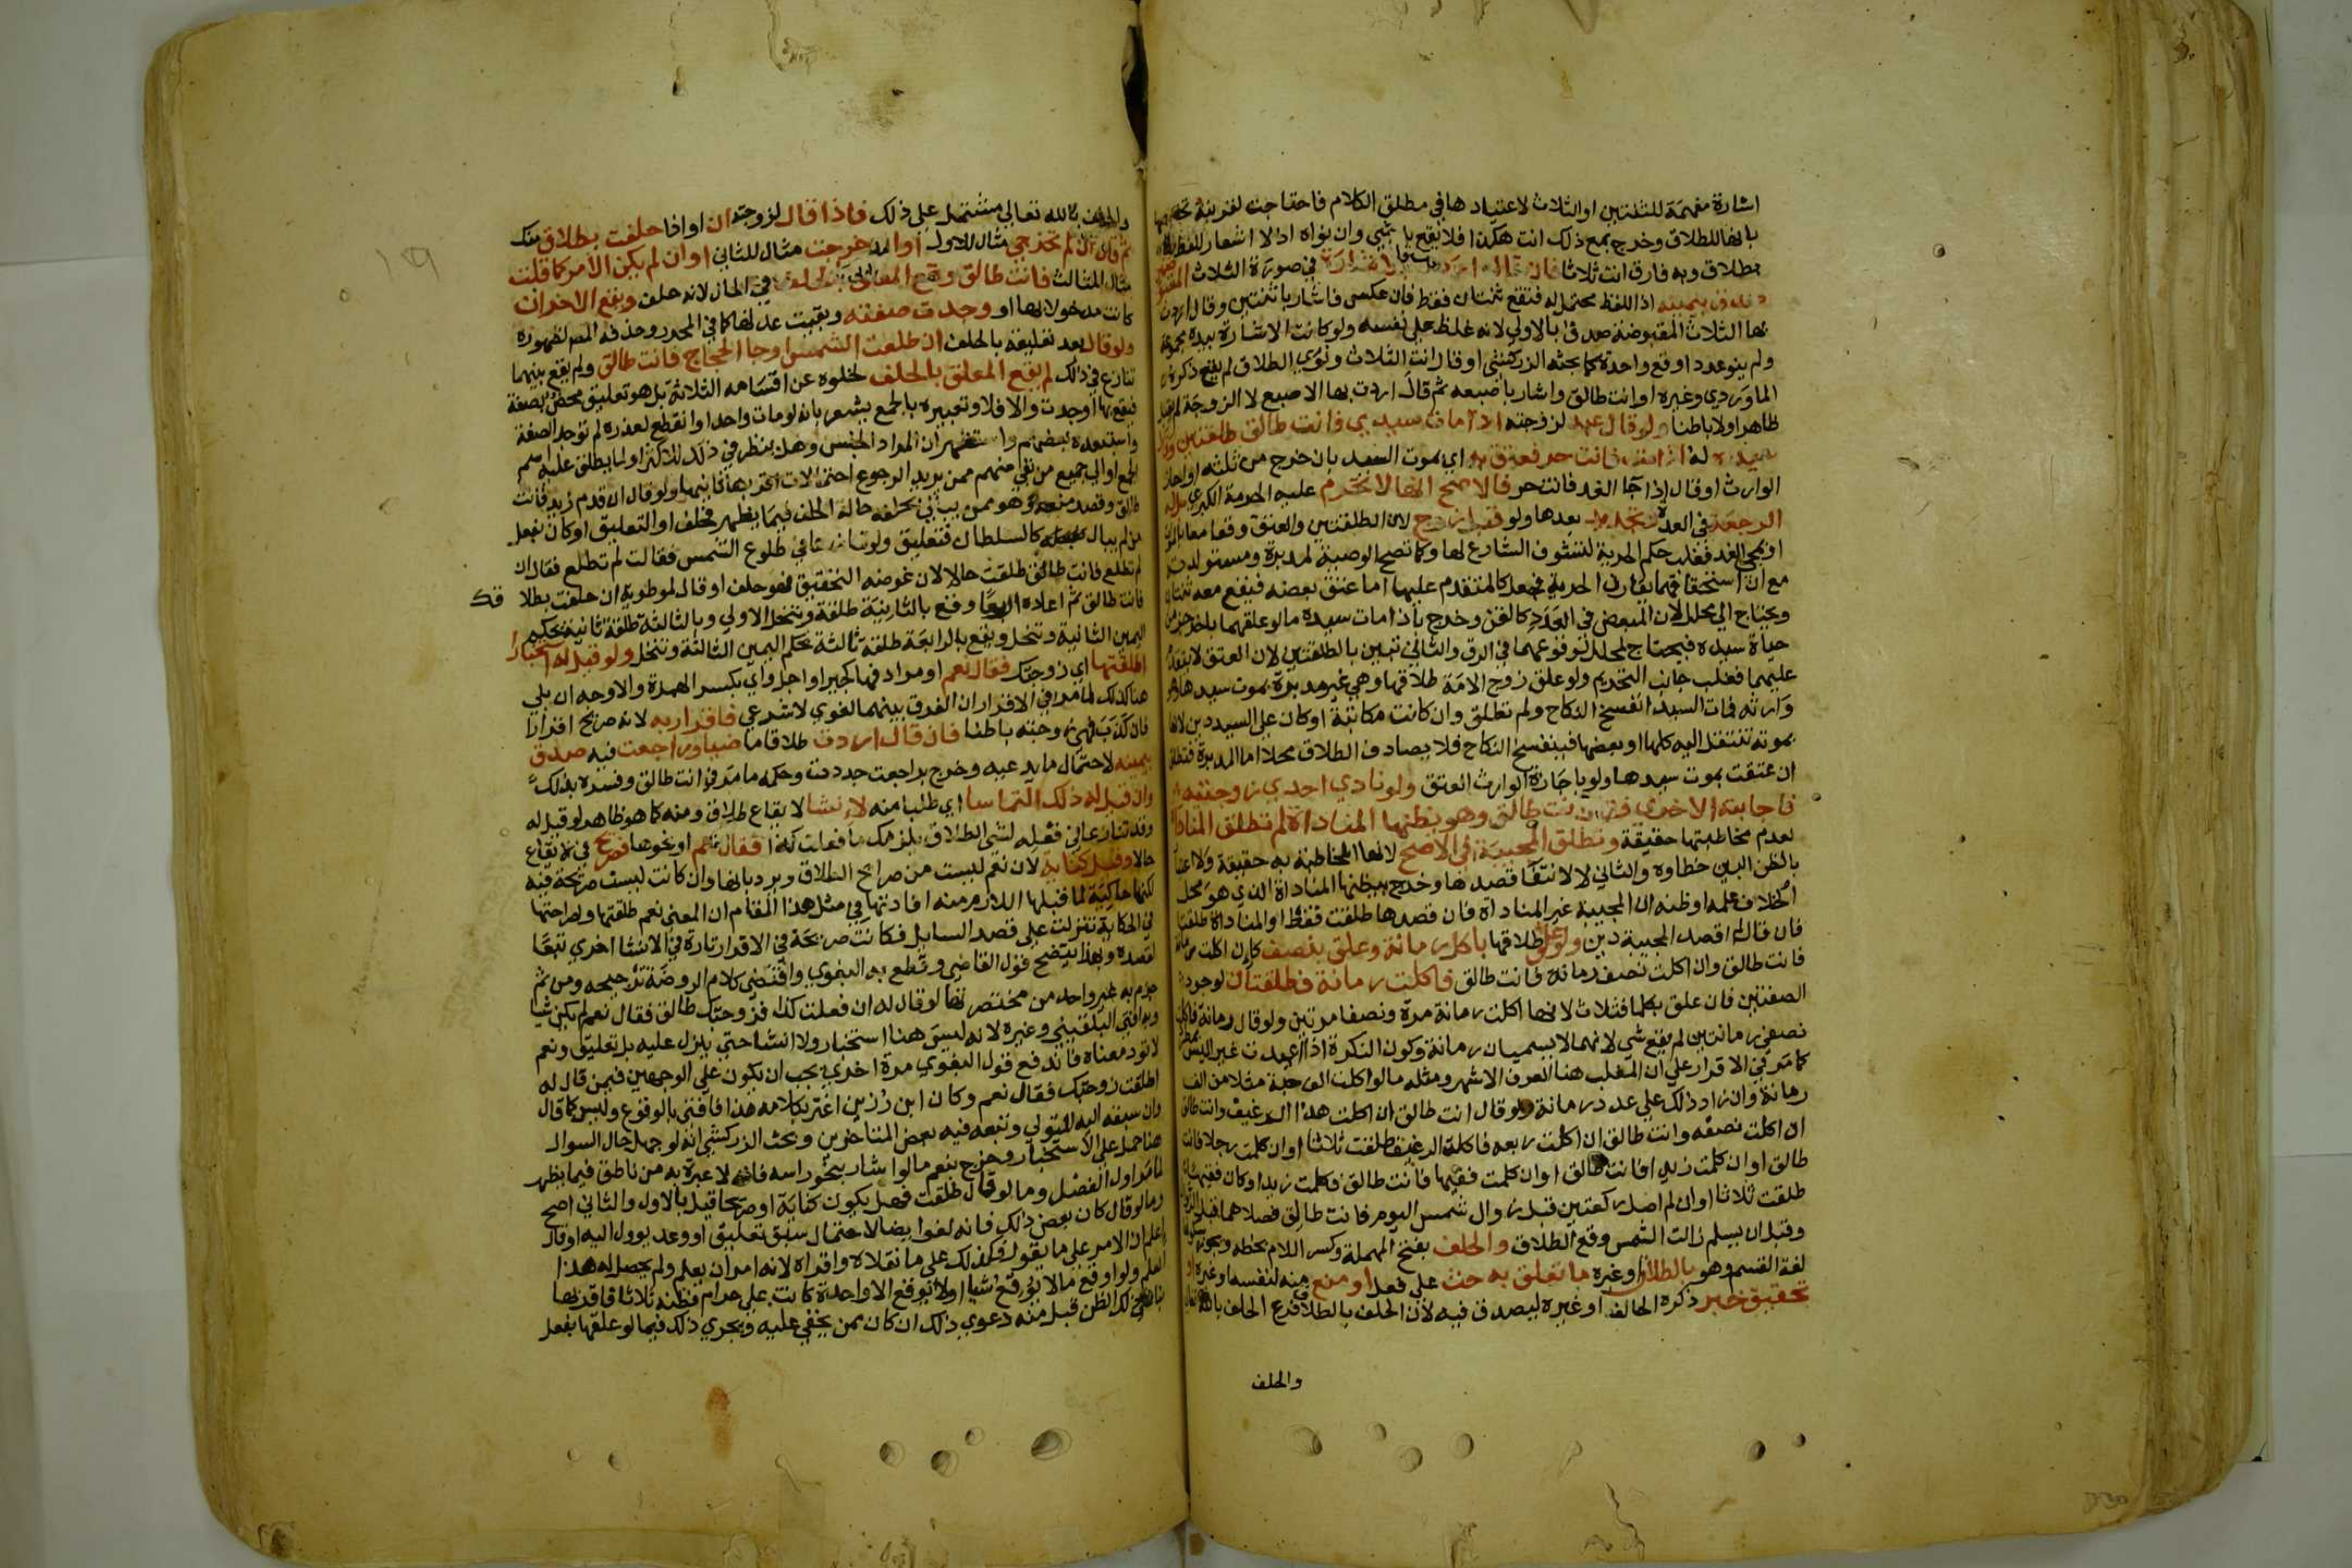 اشارة مفهمة للثنتين او الثلاث لاعتيادها في مطلق الكلام فاحتاجت لقرينة تخصها
بانها للطلاق وخرج بمع ذلك انت هكذا فلا يقع بها شي وان نواه اذ لا اشعار للفظ
بطلاق وبه فارق انت ثلاثا فان قال اردت بالاشارة في صورة الثلاث المقبوضتين
صدق بيمينه اذ اللفظ محتمل له فتقع ثنتان فقط فان عكس فاشار باثنتين وقال اردت
بها الثلاث المقبوضة صدق بالاولى لانه غلظ على نفسه ولو كانت الاشارة بيده مجموعة
ولم ينو عددا وقع واحدة كما بحثه الزركشي او قال انت الثلاث ونوى الطلاق لم يقع ذكره
الماوردي وغيره او انت طالق واشار باصبعه ثم قال اردت بها الاصبع لا الزوجة لم يقبل
ظاهرا ولا باطنا ولو قال عبد لزوجته اذا مات سيدي فانت طالق طلقتين وقال
سيده له اذا مت فانت حر فعتق به اي بموت السيد بان خرج من ثلثه او اجاز
الوارث او قال اذا جا الغد فانت حر فالاصح انها لا تحرم عليه الحرمة الكبرى بل له
الرجعة في العدة وتجديد بعدها ولو قبل زوج لان الطلقتين والعتق وقعا معا بالموت
او بمجي الغد فغلب حكم الحرية لتشوف الشارع لها وكما تصح الوصية لمدبره ومستولدته
مع ان استحقاقهما يقارن الحرية فجعل كالمتقدم عليها اما عتق بعضه فيقع معه ثنتان
ويحتاج الى محلل لان المبعض في العدد كالقن وخرج باذا مات سيده ما لو علقهما باخر جز من
حياة سيده فيحتاج لمحلل لوقوعهما في الرق والثاني تبين بالطلقتين لان العتق لا يتقدم
عليهما فغلب جانب التحريم ولو علق زوج الامة طلاقها وهي غير مدبرة بموت سيدها وهو
وارثه فمات السيد انفسخ النكاح ولم تطلق وان كانت مكاتبة او كان على السيد دين لانها
بموته تنتقل اليه كلها او بعضها فينفسخ النكاح فلا يصادف الطلاق محلا اما المدبرة فتطلق
ان عتقت بموت سيدها ولو باجازة الوارث العتق ولو نادى احدى زوجتيه
فاجابته الاخرى فقال انت طالق وهو يظنها المناداة لم تطلق المناداة
لعدم مخاطبتها حقيقة وتطلق المجيبة في الاصح لانها المخاطبة به حقيقة ولا اعتبار
بالظن البين خطاوه والثاني لا لانتفا قصدها وخرج بيظنها المناداة الذي هو محل
الخلاف علمه او ظنه ان المجيبة غير المناداة فان قصدها طلقت فقط او المناداة طلقتا
فان قال لم اقصد المجيبة دين ولو علق طلاقها باكل رمانة وعلق بنصف كان اكلت رمانة
فانت طالق وان اكلت نصف رمانة فانت طالق فاكلت رمانة فطلقتان لوجود
الصفتين فان علق بكلما فثلاث لانها اكلت رمانة مرة ونصفا مرتين ولو قال رمانة فاكلت
نصفي رمانتين لم يقع شي لانهما لا يسميان رمانة وكون النكرة اذا اعيدت غير ليس
كما مر في الاقرار على ان المغلب هنا العرف الاشهر ومثله ما لو اكلت الف حبة مثلا من الف
رمانة وان زاد ذلك على عدد رمانة ولو قال انت طالق ان اكلت هذا الرغيف وانت طالق
ان اكلت نصفه وانت طالق ان اكلت ربعه فاكلت الرغيف طلقت ثلاثا او ان كلمت رجلا فانت
طالق او ان كلمت زيدا فانت طالق او ان كلمت فقيها فانت طالق فكلمت زيدا وكان فقيها
طلقت ثلاثا او ان لم اصل ركعتين قبل زوال شمس اليوم فانت طالق فصلاهما قبل الزوال
وقبل ان يسلم زالت الشمس وقع الطلاق والحلف بفتح المهملة وكسر اللام بخطه ويجوز سكونها
لغة القسم وهو بالطلاق او غيره ما تعلق به حث على فعل او منع منه لنفسه او غيره او
تحقيق خبر ذكره الحالف او غيره ليصدق فيه لان الحلف بالطلاق فرع الحلف بالله تعالى
والحلف
والحلف بالله تعالى مشتمل على ذلك فاذا قال لزوجته ان او اذا حلفت بطلاق منك
ثم قال ان لم تخرجي مثال للاول او ان خرجت مثال للثاني او ان لم يكن الامر كما قلت
مثال للثالث فانت طالق وقع المعلق بالحلف في الحال لانه حلف ويقع الاخر ان
كانت مدخولا بها او وجدت صفته وبقيت عدتها كما في المحرر وحذفه المص لظهوره
ولو قال بعد تعليقه بالحلف ان طلعت الشمس او جا الحجاج فانت طالق ولم يقع بينهما
تنازع في ذلك لم يقع المعلق بالحلف لخلوه عن اقسامه الثلاثة بل هو تعليق محض بصفة
فيقع بها ان وجدت والا فلا وتعبيره بالجمع يشعر بانه لو مات واحد او انقطع لعذر لم توجد الصفة
واستبعده بعضهم واستظهر ان المراد الجنس وهل ينظر في ذلك للاكثر او لما يطلق عليه اسم
الجمع او الى جميع من بقي منهم ممن يريد الرجوع احتمالات اقربها ثانيها ولو قال ان قدم زيد فانت
طالق وقصد منعه وهو ممن يبالي بحلفه حالة الحلف فيما يظهر فحلف او التعليق او كان بفعل
من لم يبال كالسلطان فتعليق ولو تنازعا في طلوع الشمس فقالت لم تطلع فقال ان
لم تطلع فانت طالق طلقت حالا لان غرضه التحقيق فهو حلف او قال لموطوته ان حلفت بطلا قك
فانت طالق ثم اعاده اربعا وقع بالثانية طلقة وتنحل الاولى وبالثالثة طلقة ثانية بحكم
اليمين الثانية وتنحل ويقع بالرابعة طلقة ثالثة بحكم اليمين الثالثة وتنحل ولو قيل له استخبارا
اطلقتها اي زوجتك فقال نعم او مرادفها كجير او اجل واي بكسر الهمزة والاوجه ان بلى
هنا كذلك لما مر في الاقرار ان الفرق بينهما لغوي لا شرعي فاقرار به لانه صريح اقرار
فان كذب فهي زوجته باطنا فان قال اردت طلاقا ماضيا وراجعت فيه صدق
بيمينه لاحتمال ما يدعيه وخرج براجعت جددت وحكمه ما مر في انت طالق وفسره بذلك
وان قيل له ذلك التماسا اي طلبا منه لانشا لايقاع طلاق ومنه كما هو ظاهر لو قيل له
وقد تنازعا في فعله لشي الطلاق يلزمك ما فعلت كذا فقال نعم او نحوها فصريح في الايقاع
حالا وقيل كناية لان نعم ليست من صرايح الطلاق ويرد بانها وان كانت ليست صريحة فيه
لكنها حاكية لما قبلها اللازم منه افادتها في مثل هذا المقام ان المعنى نعم طلقتها ولصراحتها
في الحكاية تنزلت على قصد السايل فكانت صريحة في الاقرار تارة في الانشا اخرى تبعا
لقصده وبهذا يتضح قول القاضي وقطع به البغوي واقتضى كلام الروضة ترجيحه ومن ثم
جزم به غير واحد من مختصريها لو قال له ان فعلت كذا فزوجتك طالق فقال نعم لم يكن شيا
وبه افتى البلقيني وغيره لانه ليس هنا استخبار ولا انشا حتى ينزل عليه بل تعليق ونعم
لا تود معناه فاندفع قول البغوي مرة اخرى يجب ان يكون على الوجهين فيمن قال له
اطلقت زوجتك فقال نعم وكان ابن رزين اغتر بكلامه هذا فافتى بالوقوع وليس كما قال
وان سبقه اليه المتولي وتبعه فيه بعض المتاخرين وبحث الزركشي انه لو جهل حال السوال
هنا حمل على الاستخبار وخرج بنعم ما لو اشار بنحو راسه فانه لا عبرة به من ناطق فيما يظهر
لما مر اول الفصل وما لو قال طلقت فهل يكون كناية او صريحا قيل بالاول والثاني اصح
وما لو قال كان بعض ذلك فانه لغو ايضا لاحتمال سبق تعليق او وعد يوول اليه او قال
اعلم ان الامر على ما يقول فكذلك على ما نقلاه واقراه لانه امر ان يعلم ولم يحصل له هذا
العلم ولو اوقع ما لا يوقع شيا او لا يوقع الا واحدة كانت علي حرام فظنه ثلاثا فاقر بها
بنا على ذلك الظن قبل منه دعوى ذلك ان كان ممن يخفى عليه ويجري ذلك فيما لو علقها بفعل